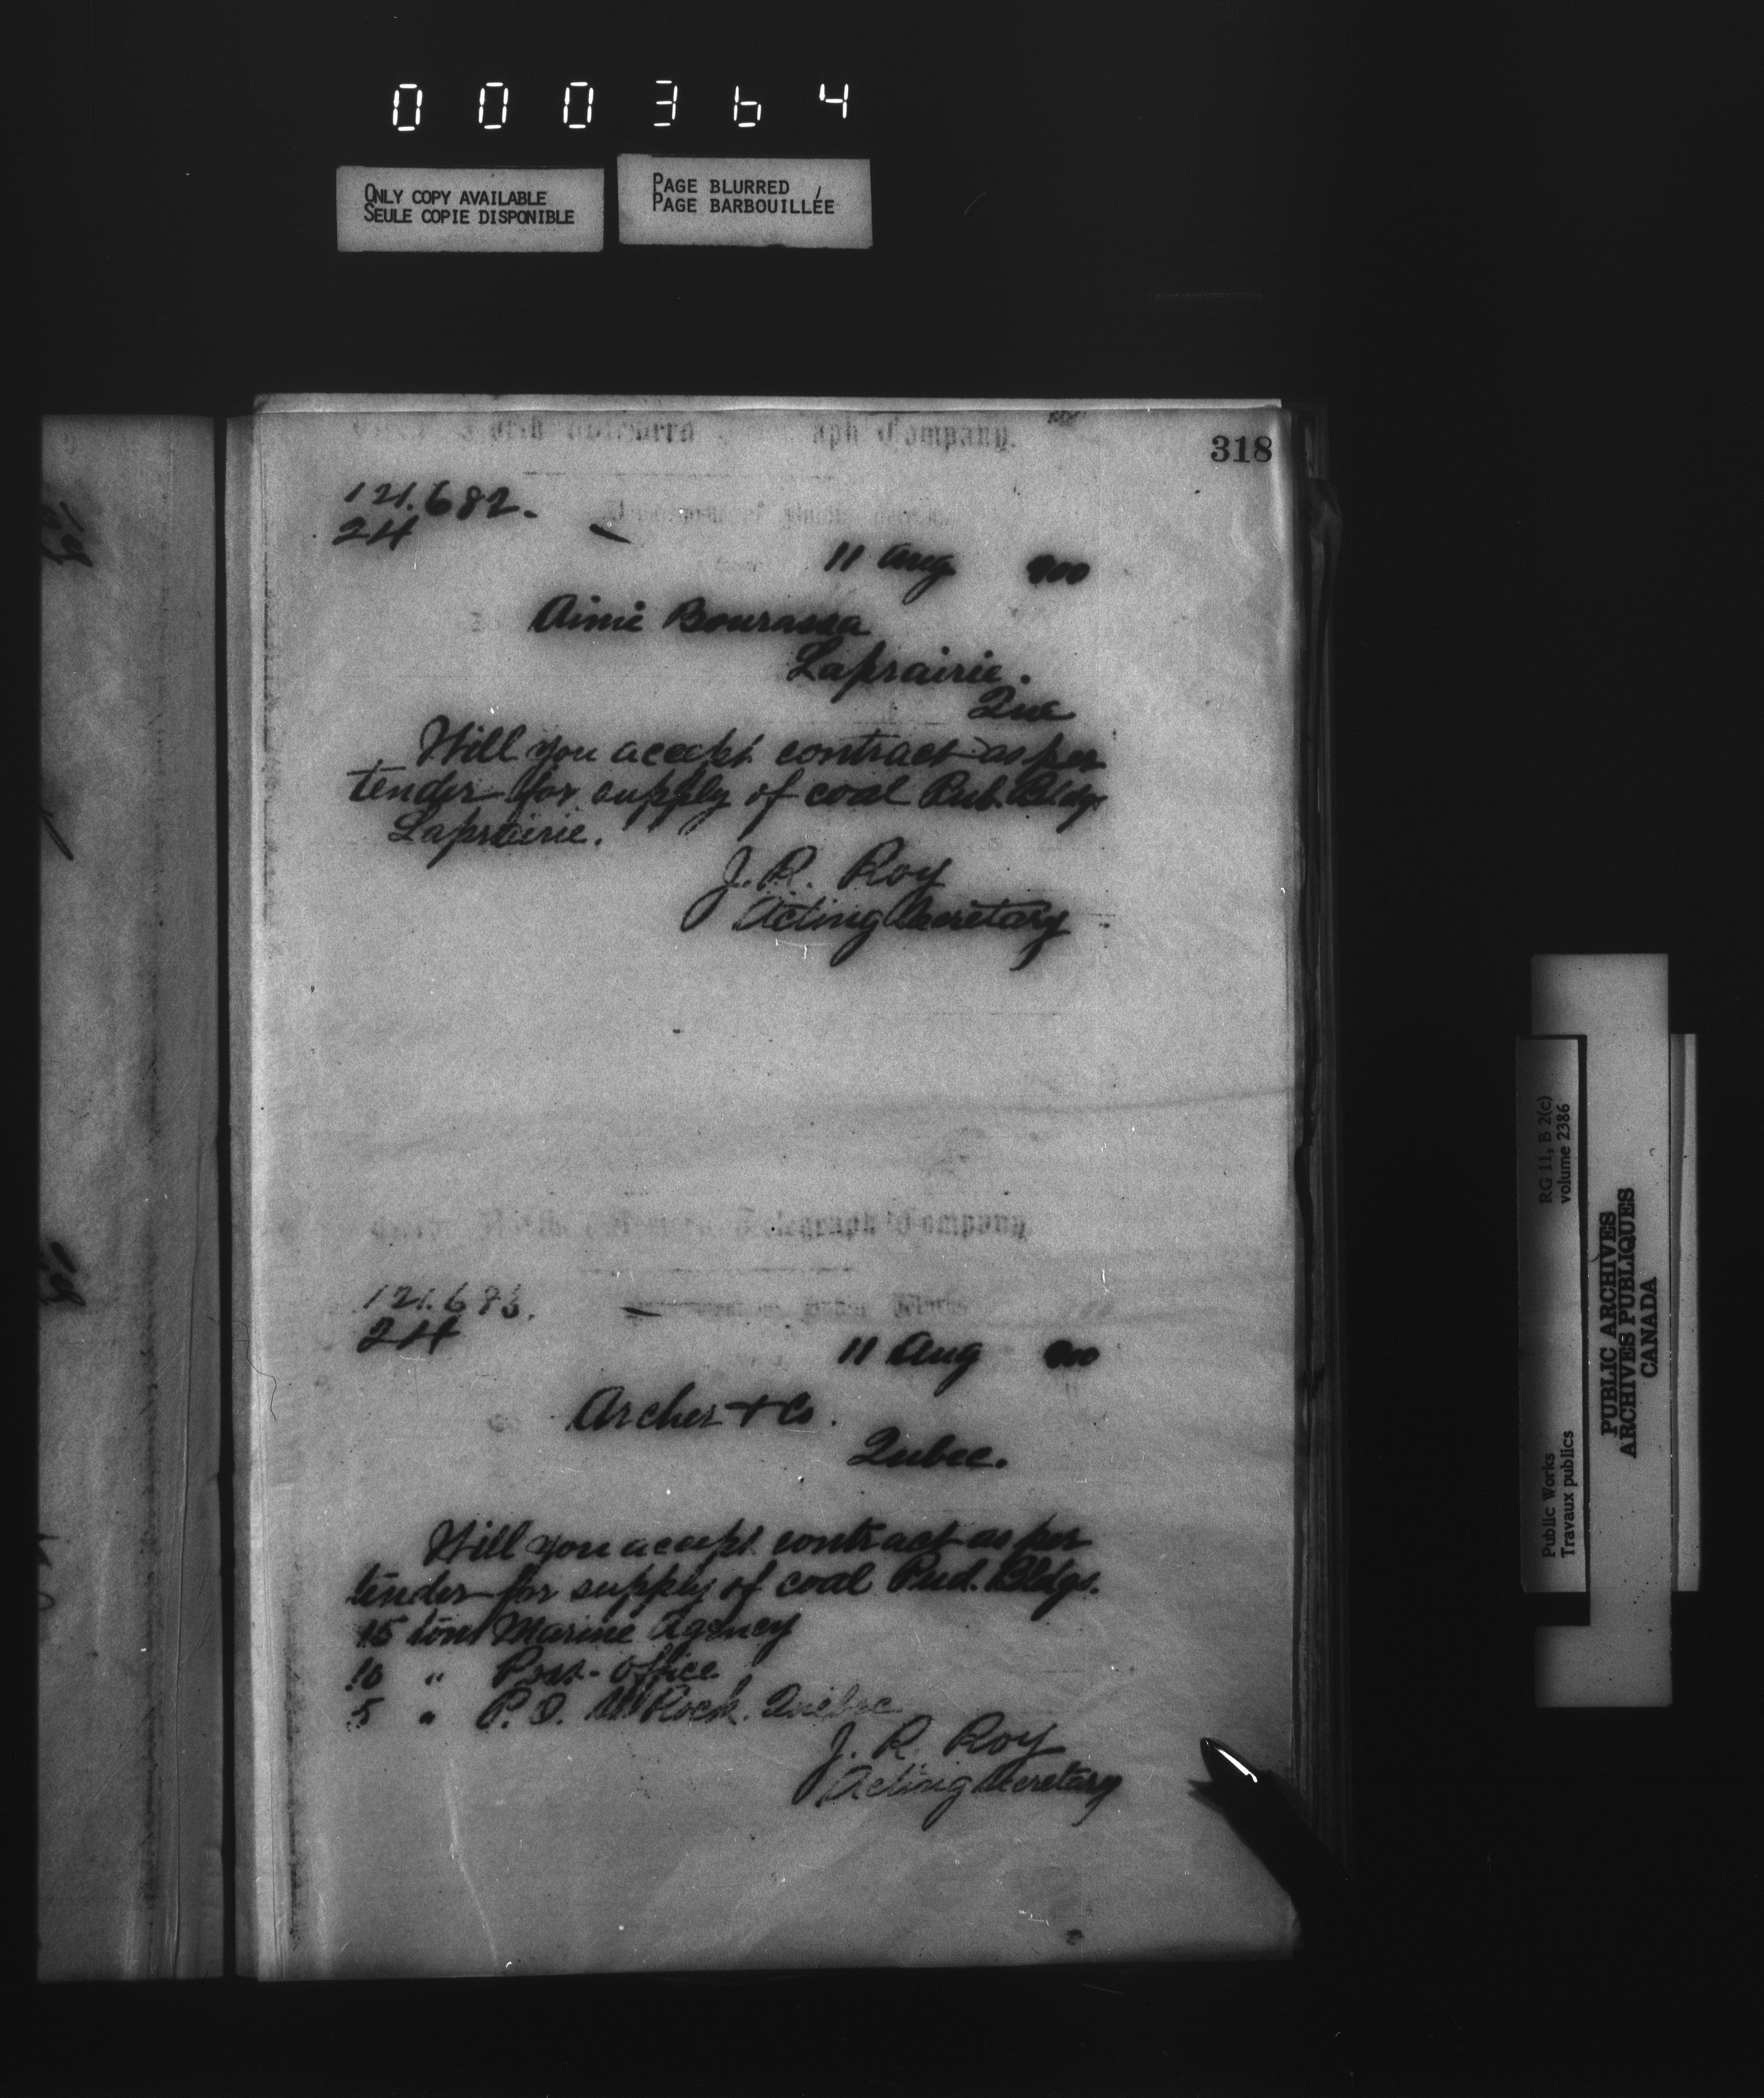 000364
ONLY COPY AVAILABLE
SEULE COPIE DISPONIBLE
PAGE BLURRED
PAGE BARBOUILLÉE
318
Telegraph Company.
121.682.
24
11 Aug 900
Aimé Bourassa
Laprairie.
Que
Will you accept contract as per
tender for supply of coal Pub. Bldgs
Laprairie.
J. R. Roy
Acting Secretary
Telegraph Company
121.683.
24
11 Aug 900
Archer & Co.
Qubec.
Will you accept contract as per
tender for supply of coal Pud. Bldgs.
15 tons Marine Agency
10 " Post-Office
5 " P.O. Rock. Quebec
J. R. Roy
Acting Secretary
RG 11, B 2(c)
volume 2386
Public Works
Travaux publics
PUBLIC ARCHIVES
ARCHIVES PUBLIQUES
CANADA